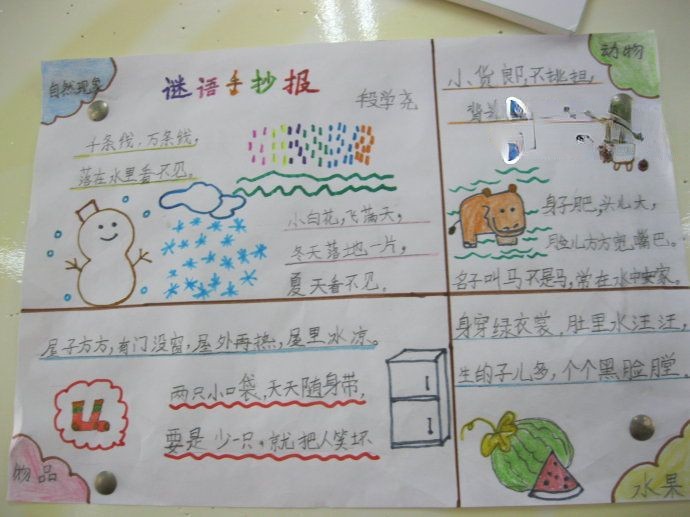 自然现象
谜语手抄报
段学尧
千条线，万条线，
落在水里看不见。
小白花，飞满天，
冬天落地一片，
夏天看不见。
动物
小货郎，不挑担，
背着
身子肥，头儿大，
脸儿方方宽嘴巴。
名子叫马不是马，常在水中安家。
屋子方方，有门没窗，屋外再热，屋里冰凉。
两只小口袋，天天随身带，
要是少一只，就把人笑坏
物品
身穿绿衣裳，肚里水汪汪，
生的子儿多，个个黑脸膛。
水果